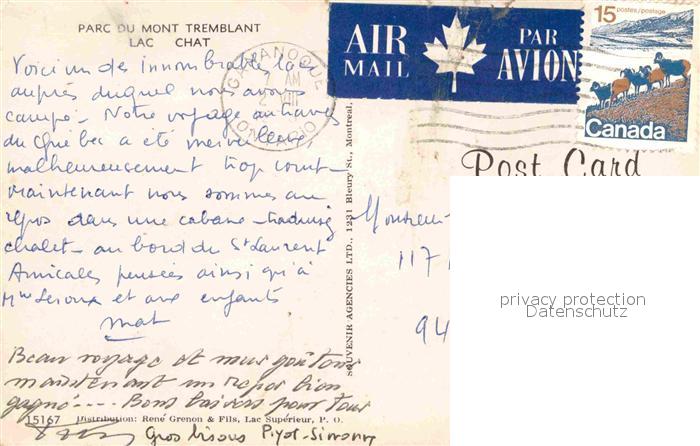 PARC DU MONT TREMBLANT
LAC CHAT
Voici un des innombrable lacs
auprès duquel nous avons
campé. Notre voyage au travers
du Québec a été merveilleux,
malheureusement trop court.
Maintenant nous sommes au
repos dans une cabane traduisez
chalet au bord du St Laurent
Amicales pensées ainsi qu'à
Mme Leroux et aux enfants
mat
Beau voyage et nous goûtons
maintenant un repos bien
gagné---- Bons baisers pour tous
15167 Distribution: René Grenon & Fils, Lac Supérieur, P. Q.
Gros bisous
SOUVENIR AGENCIES LTD., 1231 Bleury St., Montreal.
GANANOQUE
AM
ONTARIO
AIR MAIL
PAR AVION
15 postes/postage
Canada
Post Card
117
94
privacy protection
Datenschutz